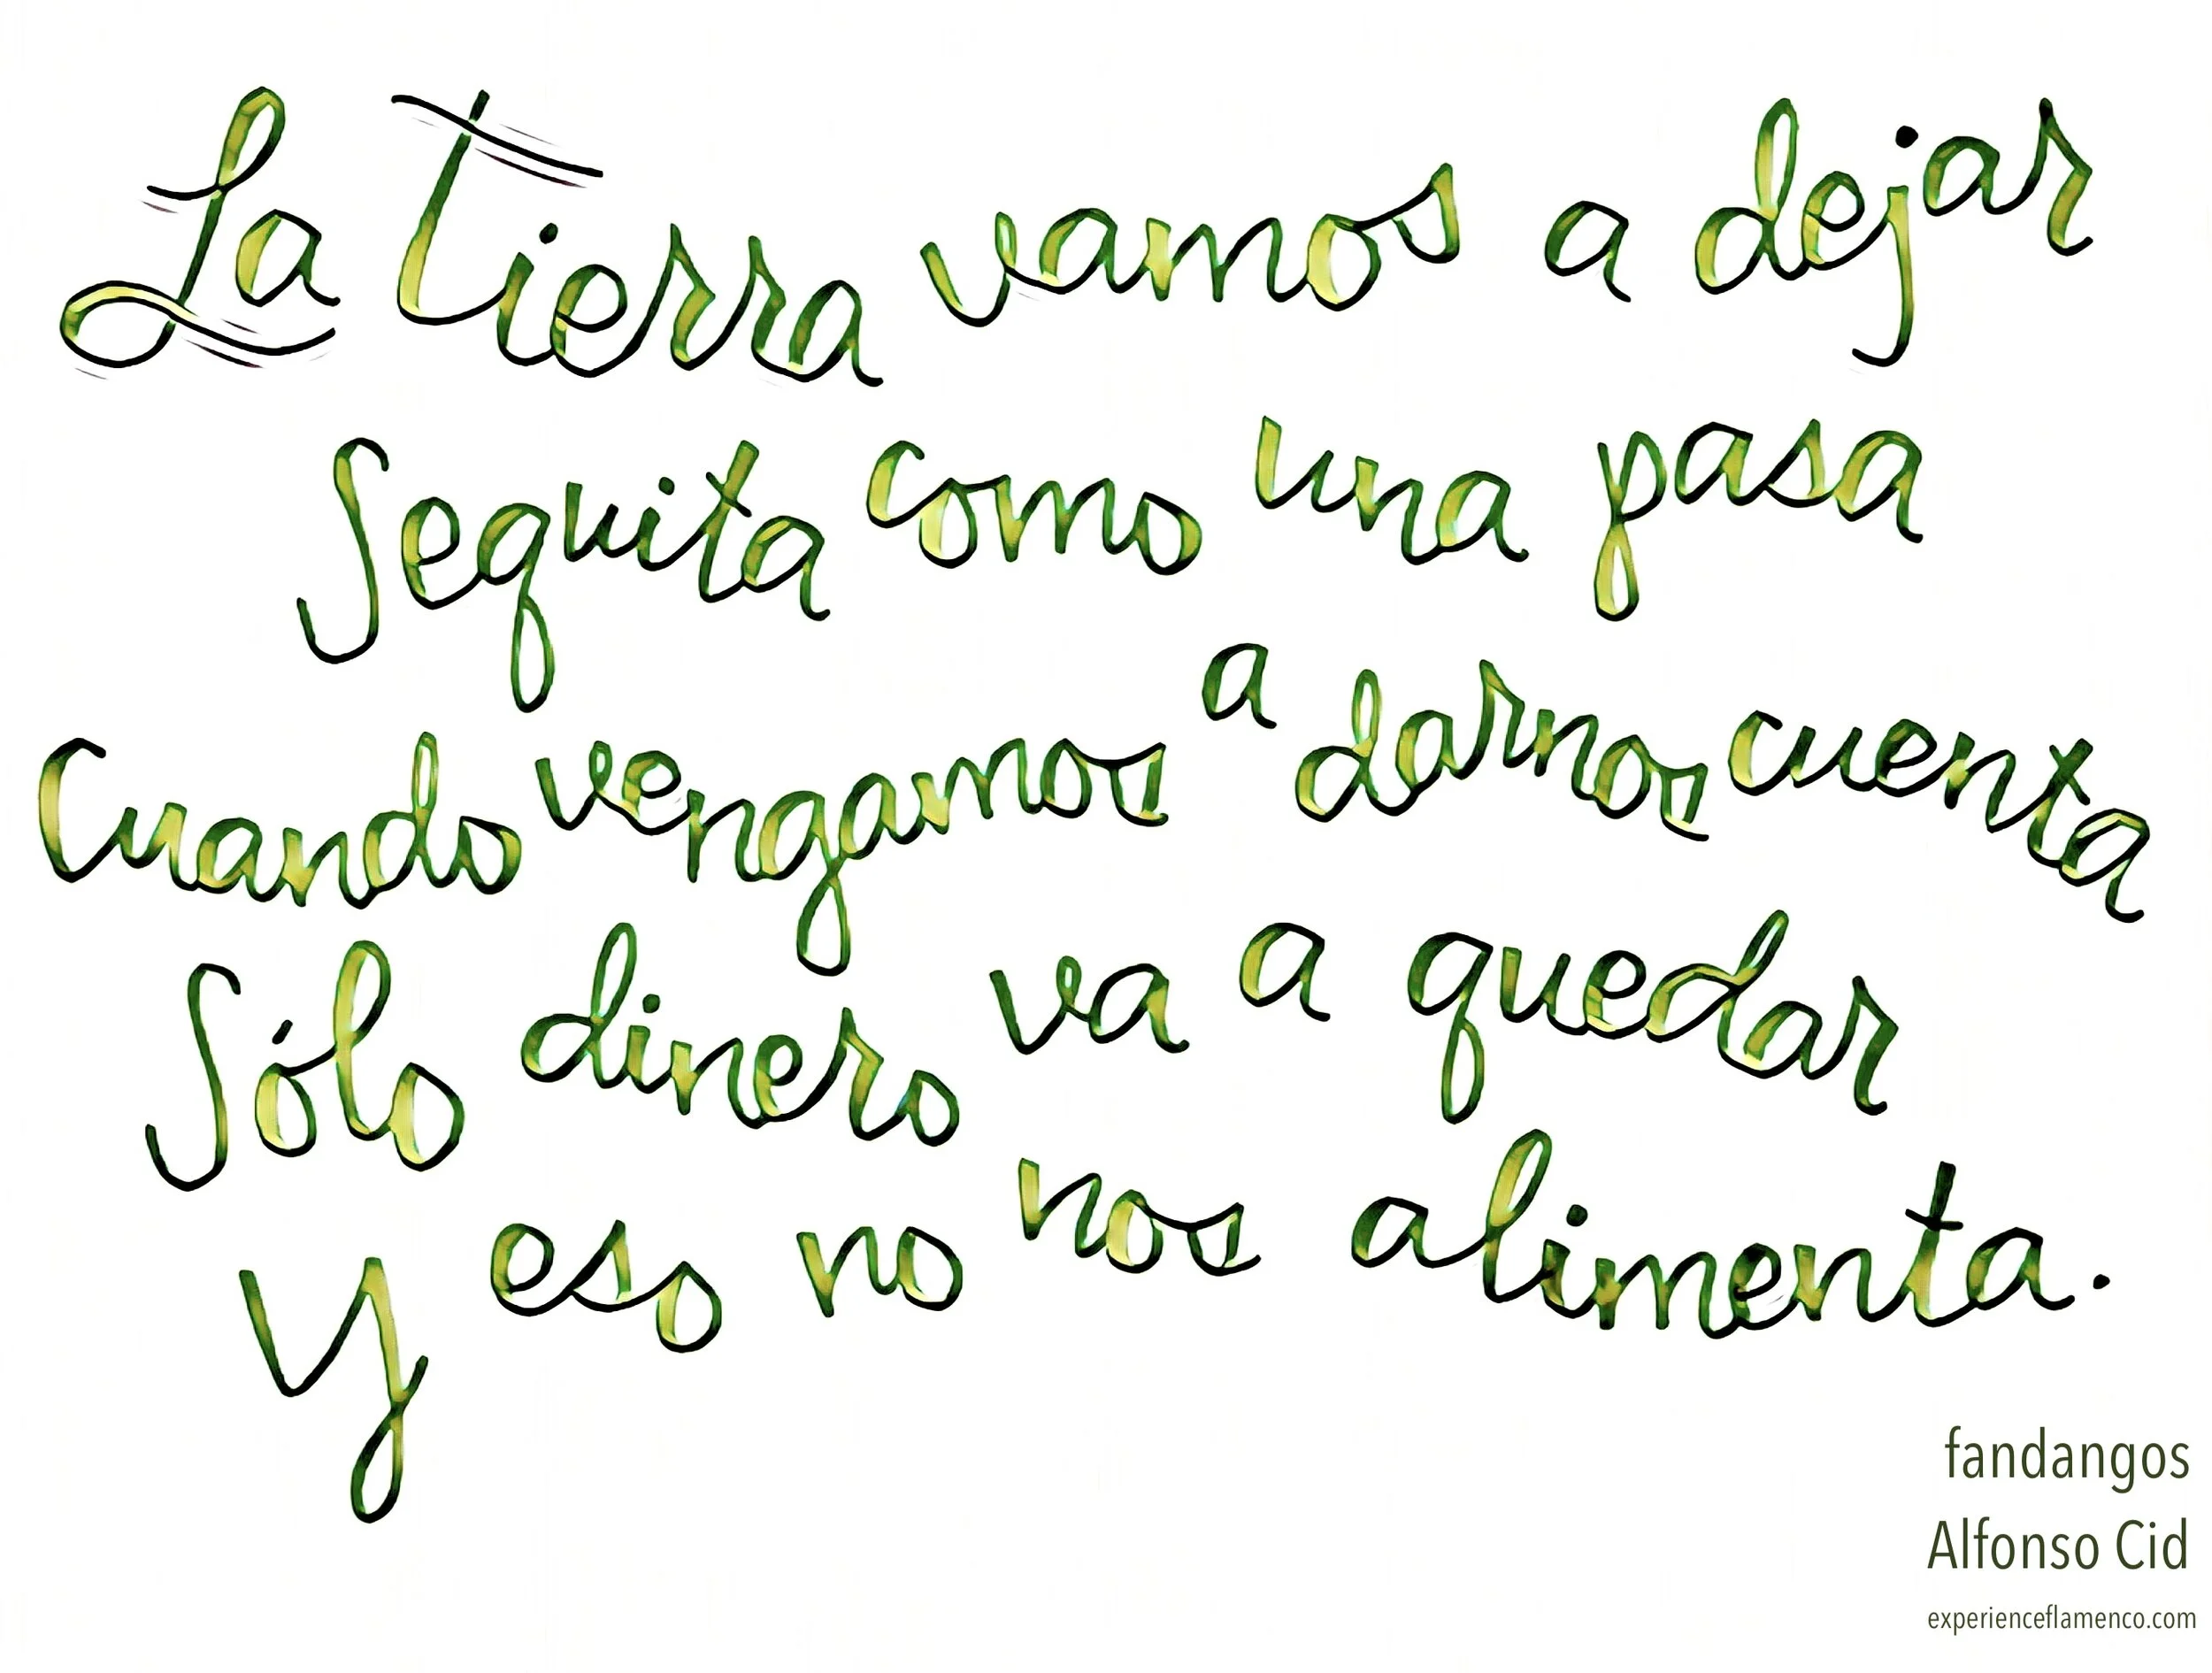 La Tierra vamos a dejar
Sequita como una pasa
Cuando vengamos a darnos cuenta
Sólo dinero va a quedar
Y eso no nos alimenta.
fandangos
Alfonso Cid
experienceflamenco.com